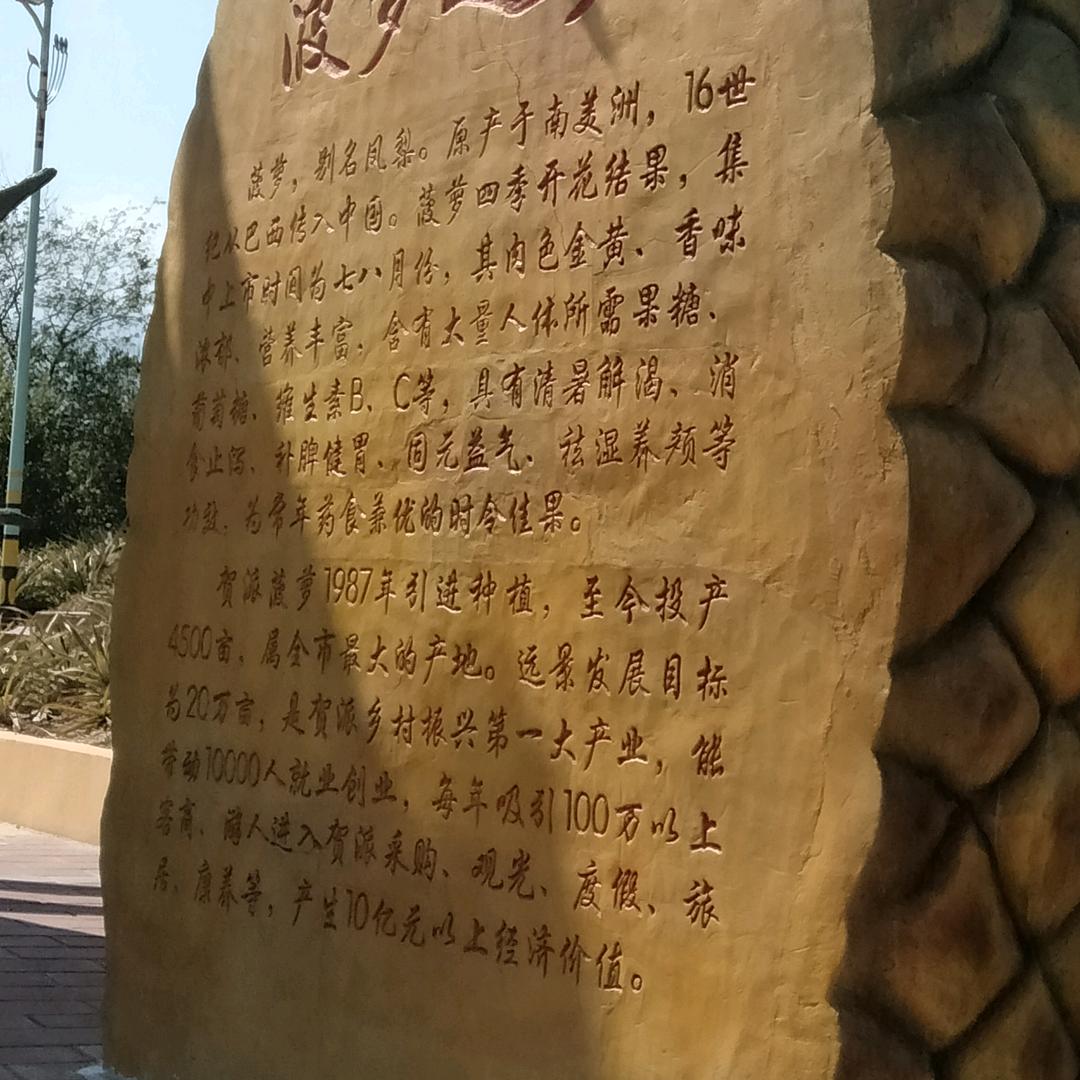 菠萝
菠萝，别名凤梨。原产于南美洲，16世
纪从巴西传入中国。菠萝四季开花结果，集
中上市时间为七八月份，其肉色金黄、香味
浓郁、营养丰富，含有大量人体所需果糖、
葡萄糖、维生素B、C等，具有清暑解渴、消
食止泻、补脾健胃、固元益气、祛湿养颊等
功效，为常年药食兼优的时令佳果。
贺派菠萝1987年引进种植，至今投产
4500亩，属全市最大的产地。远景发展目标
为20万亩，是贺派乡村振兴第一大产业，能
带动10000人就业创业，每年吸引100万以上
客商、游人进入贺派采购、观光、度假、旅
居、康养等，产生10亿元以上经济价值。